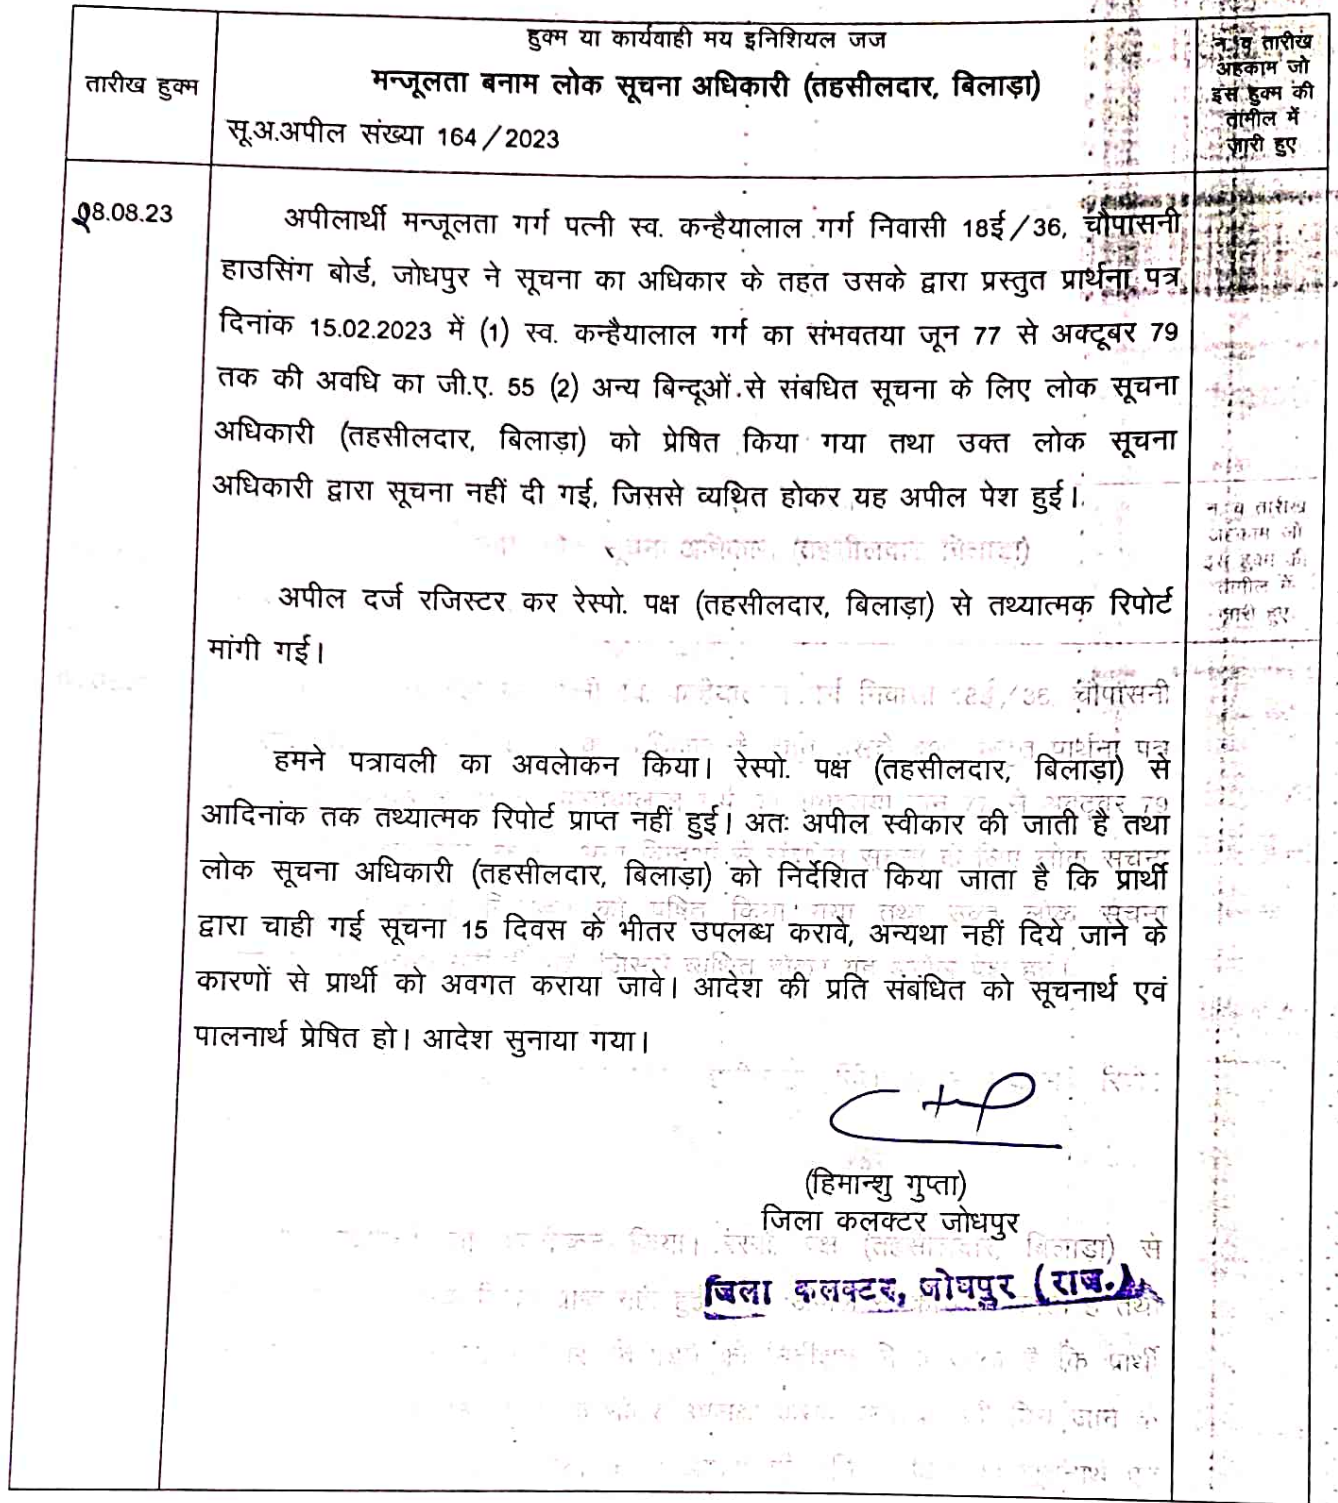 हुक्म या कार्यवाही मय इनिशियल जज
तारीख हुक्म
मन्जूलता बनाम लोक सूचना अधिकारी (तहसीलदार, बिलाड़ा)
सू.अ.अपील संख्या 164/2023
न. व तारीख
अहकाम जो
इस हुक्म की
तामील में
जारी हुए
08.08.23
अपीलार्थी मन्जूलता गर्ग पत्नी स्व. कन्हैयालाल गर्ग निवासी 18ई/36, चौपासनी
हाउसिंग बोर्ड, जोधपुर ने सूचना का अधिकार के तहत उसके द्वारा प्रस्तुत प्रार्थना पत्र
दिनांक 15.02.2023 में (1) स्व. कन्हैयालाल गर्ग का संभवतया जून 77 से अक्टूबर 79
तक की अवधि का जी.ए. 55 (2) अन्य बिन्दूओं से संबधित सूचना के लिए लोक सूचना
अधिकारी (तहसीलदार, बिलाड़ा) को प्रेषित किया गया तथा उक्त लोक सूचना
अधिकारी द्वारा सूचना नहीं दी गई, जिससे व्यथित होकर यह अपील पेश हुई।
अपील दर्ज रजिस्टर कर रेस्पो. पक्ष (तहसीलदार, बिलाड़ा) से तथ्यात्मक रिपोर्ट
मांगी गई।
हमने पत्रावली का अवलोकन किया। रेस्पो. पक्ष (तहसीलदार, बिलाड़ा) से
आदिनांक तक तथ्यात्मक रिपोर्ट प्राप्त नहीं हुई। अतः अपील स्वीकार की जाती है तथा
लोक सूचना अधिकारी (तहसीलदार, बिलाड़ा) को निर्देशित किया जाता है कि प्रार्थी
द्वारा चाही गई सूचना 15 दिवस के भीतर उपलब्ध करावे, अन्यथा नहीं दिये जाने के
कारणों से प्रार्थी को अवगत कराया जावे। आदेश की प्रति संबंधित को सूचनार्थ एवं
पालनार्थ प्रेषित हो। आदेश सुनाया गया।
(हिमान्शु गुप्ता)
जिला कलक्टर जोधपुर
जिला कलक्टर, जोधपुर (राज.)